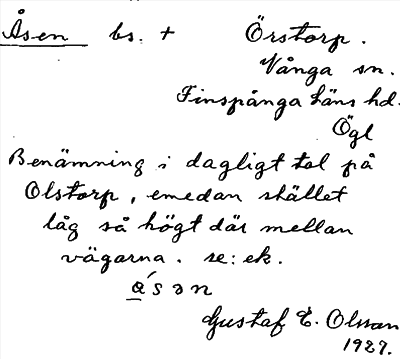 Åsen bs. + Örstorp.
Vånga sn.
Finspånga läns hd.
Ögl
Benämning i dagligt tal på
Olstorp, emedan stället
låg så högt där mellan
vägarna. se: ek.
a´sən
Gustaf E. Olsson
1927.